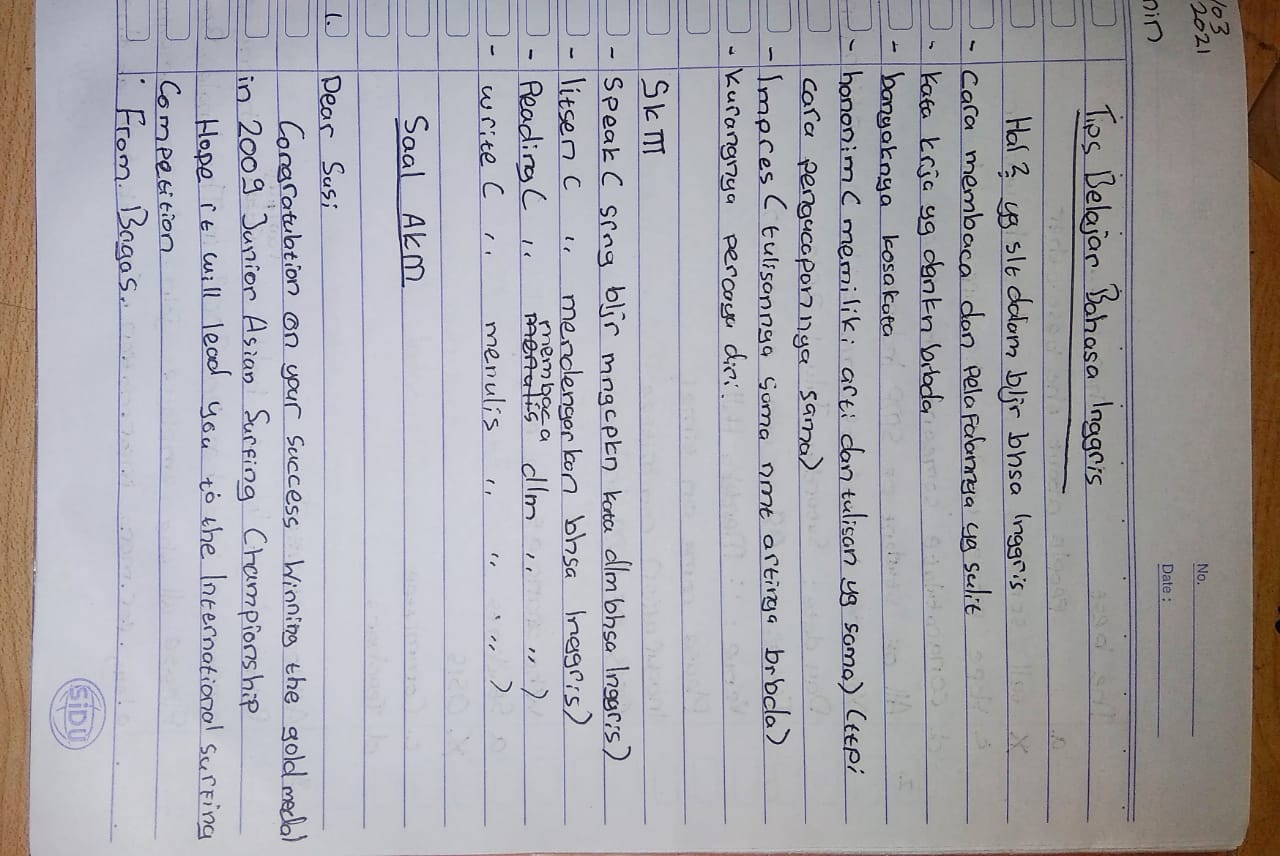 /03
2021
nin
No.
Date :
Tips Belajar Bahasa Inggris
Hal2 yg slt dalam bljr bhsa Inggris
- Cara membaca dan pelafalannya yg sulit
- kata krja yg dankn brbda
- banyaknya kosakata
- homonim ( memiliki arti dan tulisan yg sama) (ttpi
cara pengucapannya sama)
- Impres ( tulisannya sama nmt artinya brbda)
- kurangnya percaya diri.
SKM
- Speak ( srng bljr mngcpkn kata dlmbhsa Inggris)
- litsen ( " mendengarkan bhsa Inggris)
- Reading ( " membaca dlm " ")
- write ( " menulis " " ")
Soal AKM
1. Dear Susi
Congratulation on your success winning the gold medal
in 2009 Junior Asian Surfing Championship
Hope it will lead you to the International surfing
Competition
. From. Bagas.
SIDU